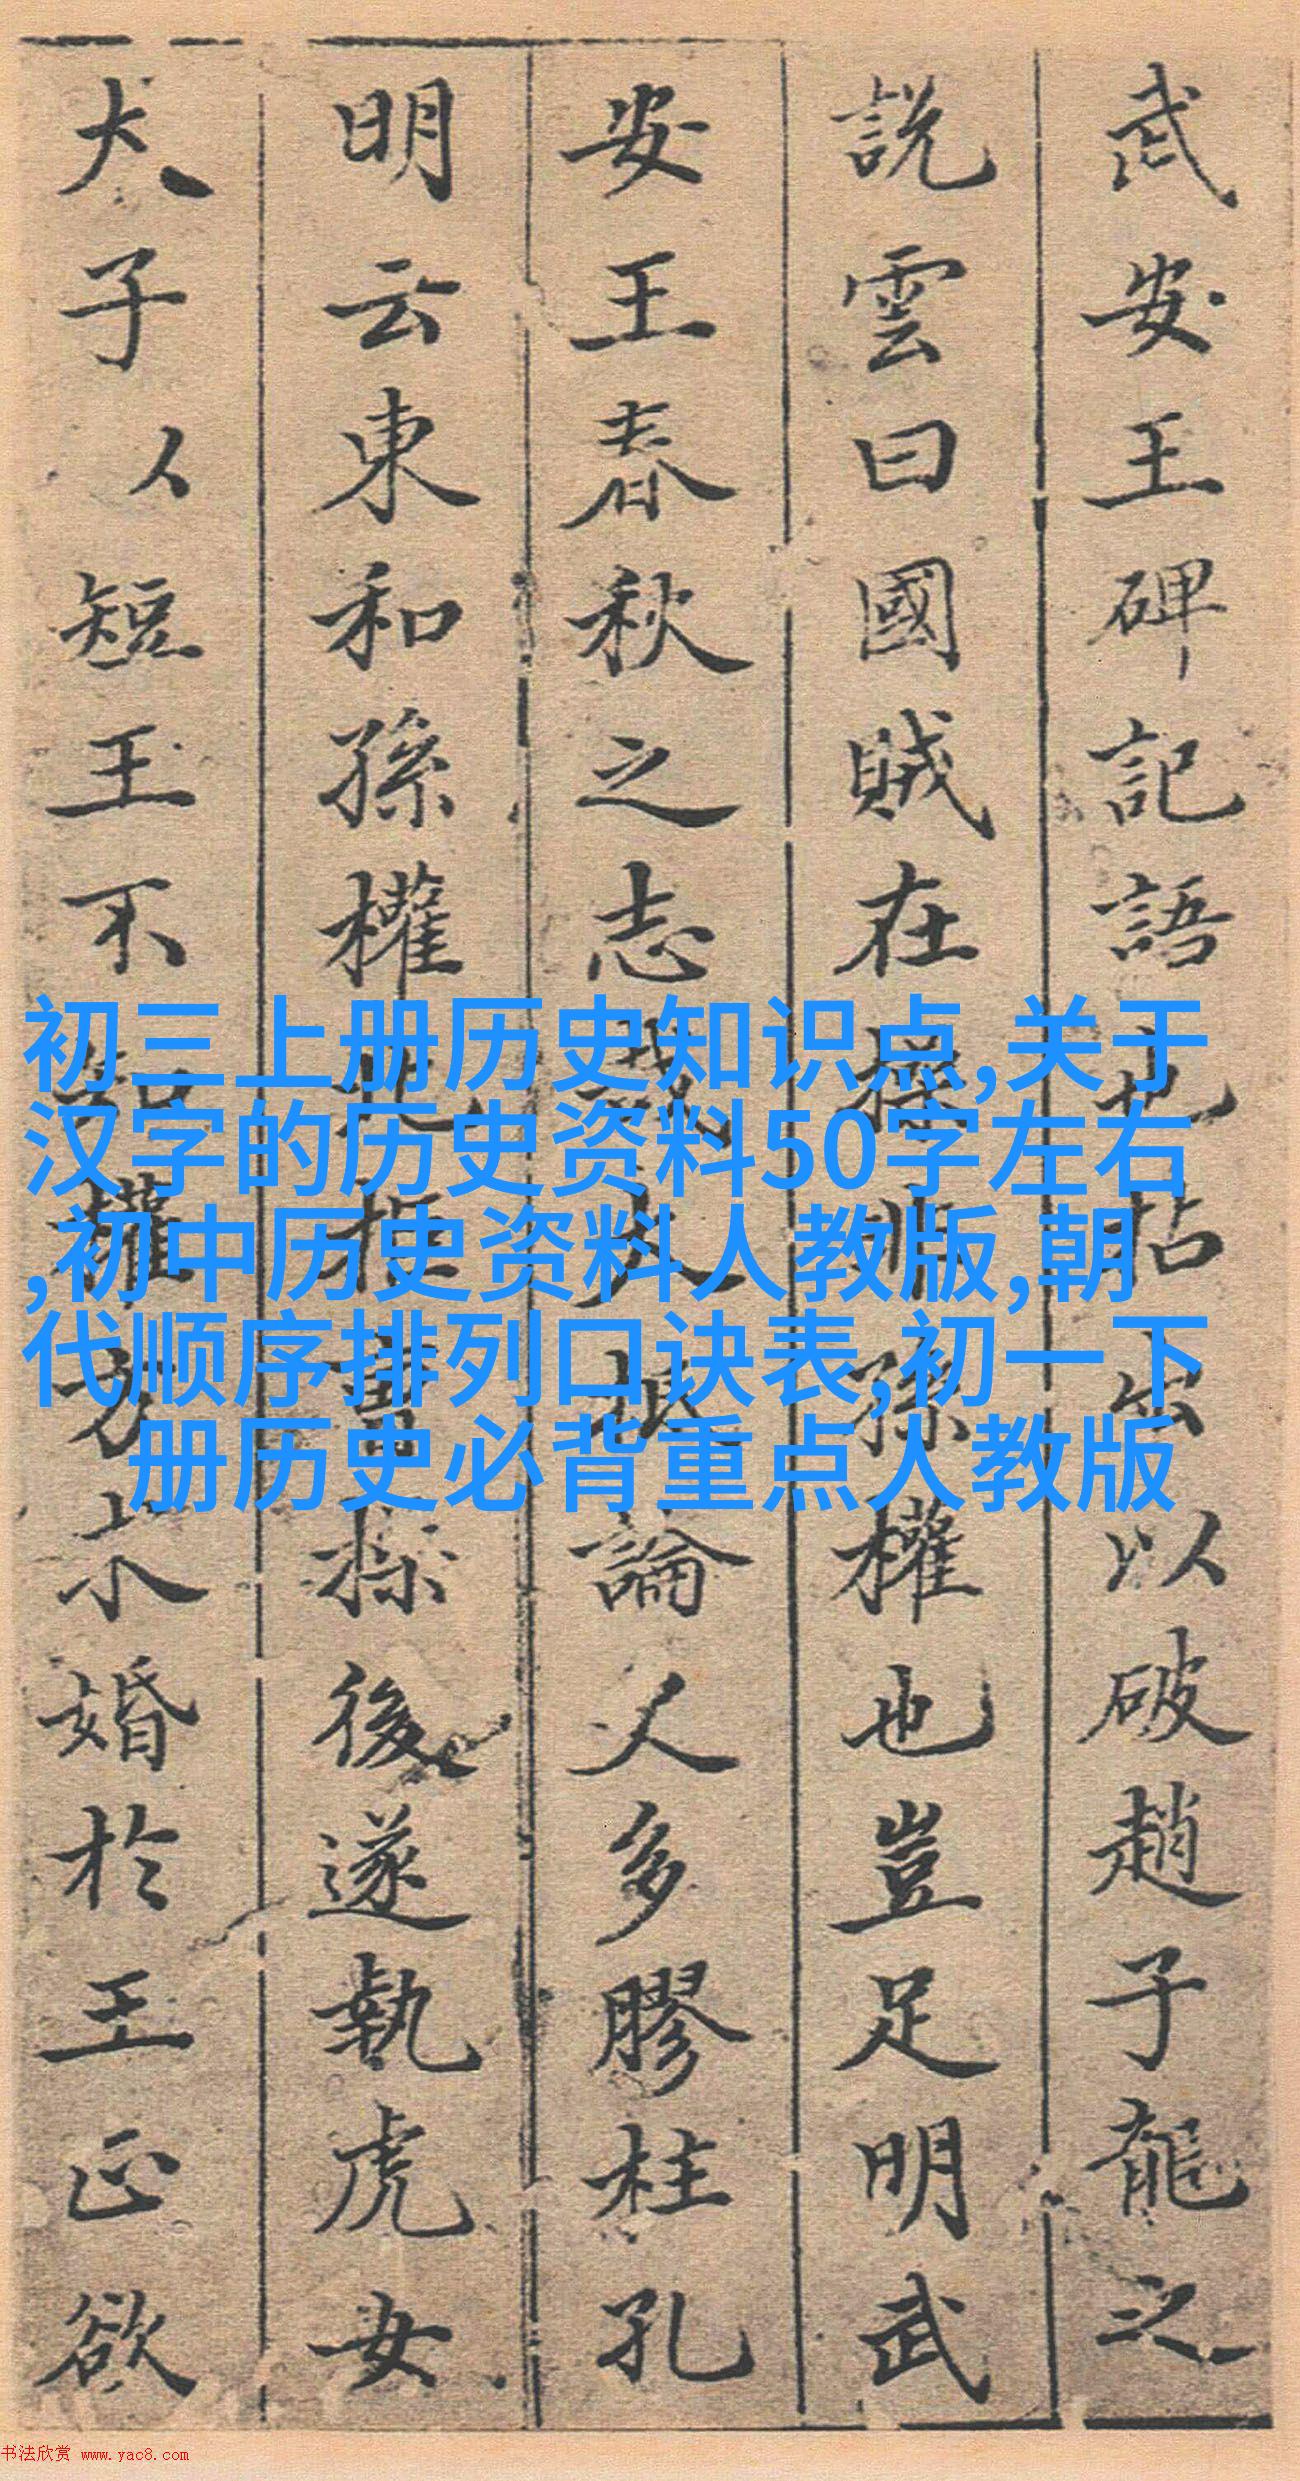 武安王碑記語也拈出以破趙子龍之
說雲曰國賊在操非孫權也豈足明武
安王春秋之志論人多膠柱孔
明云東和孫權北拒曹操後遂執虎女
犬子人短王不知權方求婚於王正欲
初三上册历史知识点,关于
汉字的历史资料50字左右
,初中历史资料人教版,朝
代顺序排列口诀表,初一下
册历史必背重点人教版
书法欣赏 www.yac8.com